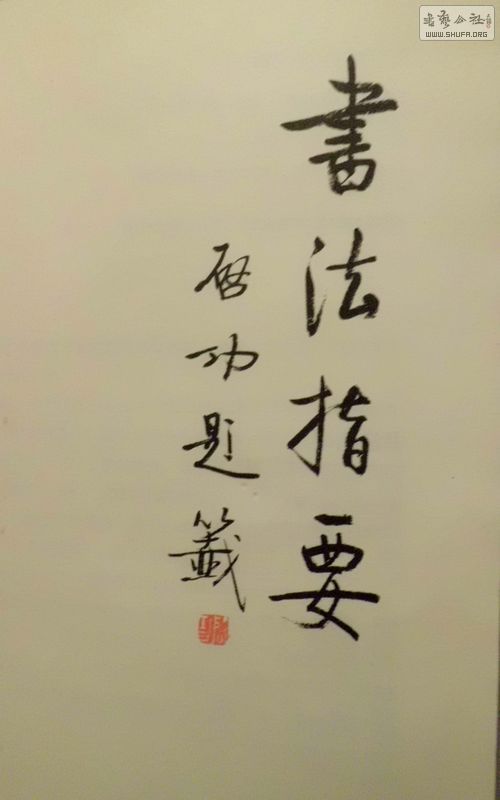 書法指要
启功題籤
書藝公社
WWW.SHUFA.ORG